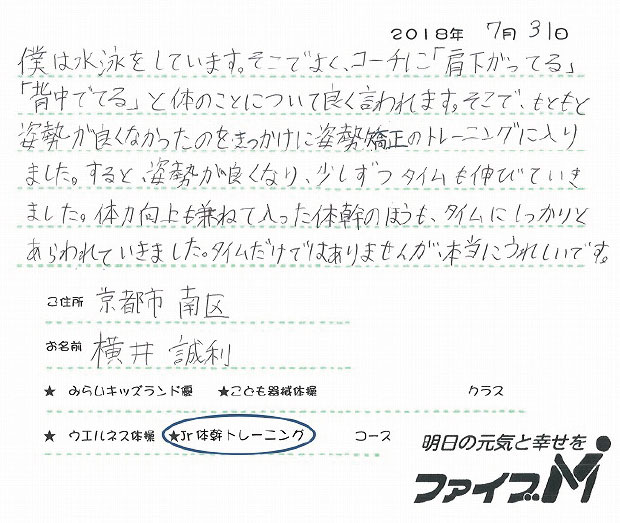 2018年 7月 31日
僕は水泳をしています。そこでよく、コーチに「肩下がってる」
「背中でてる」と体のことについて良く言われます。そこで、もともと
姿勢が良くなかったのをきっかけに姿勢矯正のトレーニングに入り
ました。すると、姿勢が良くなり、少しずつタイムも伸びていき
ました。体力向上も兼ねて入った体幹のほうも、タイムにしっかりと
あらわれていきました。タイムだけではありませんが、本当にうれしいです。
ご住所 京都市 南区
お名前 横井 誠利
★ みらいキッズランド優 ★こども器械体操 クラス
★ ウエルネス体操 ★Jr体幹トレーニング コース
明日の元気と幸せを
ファイブM